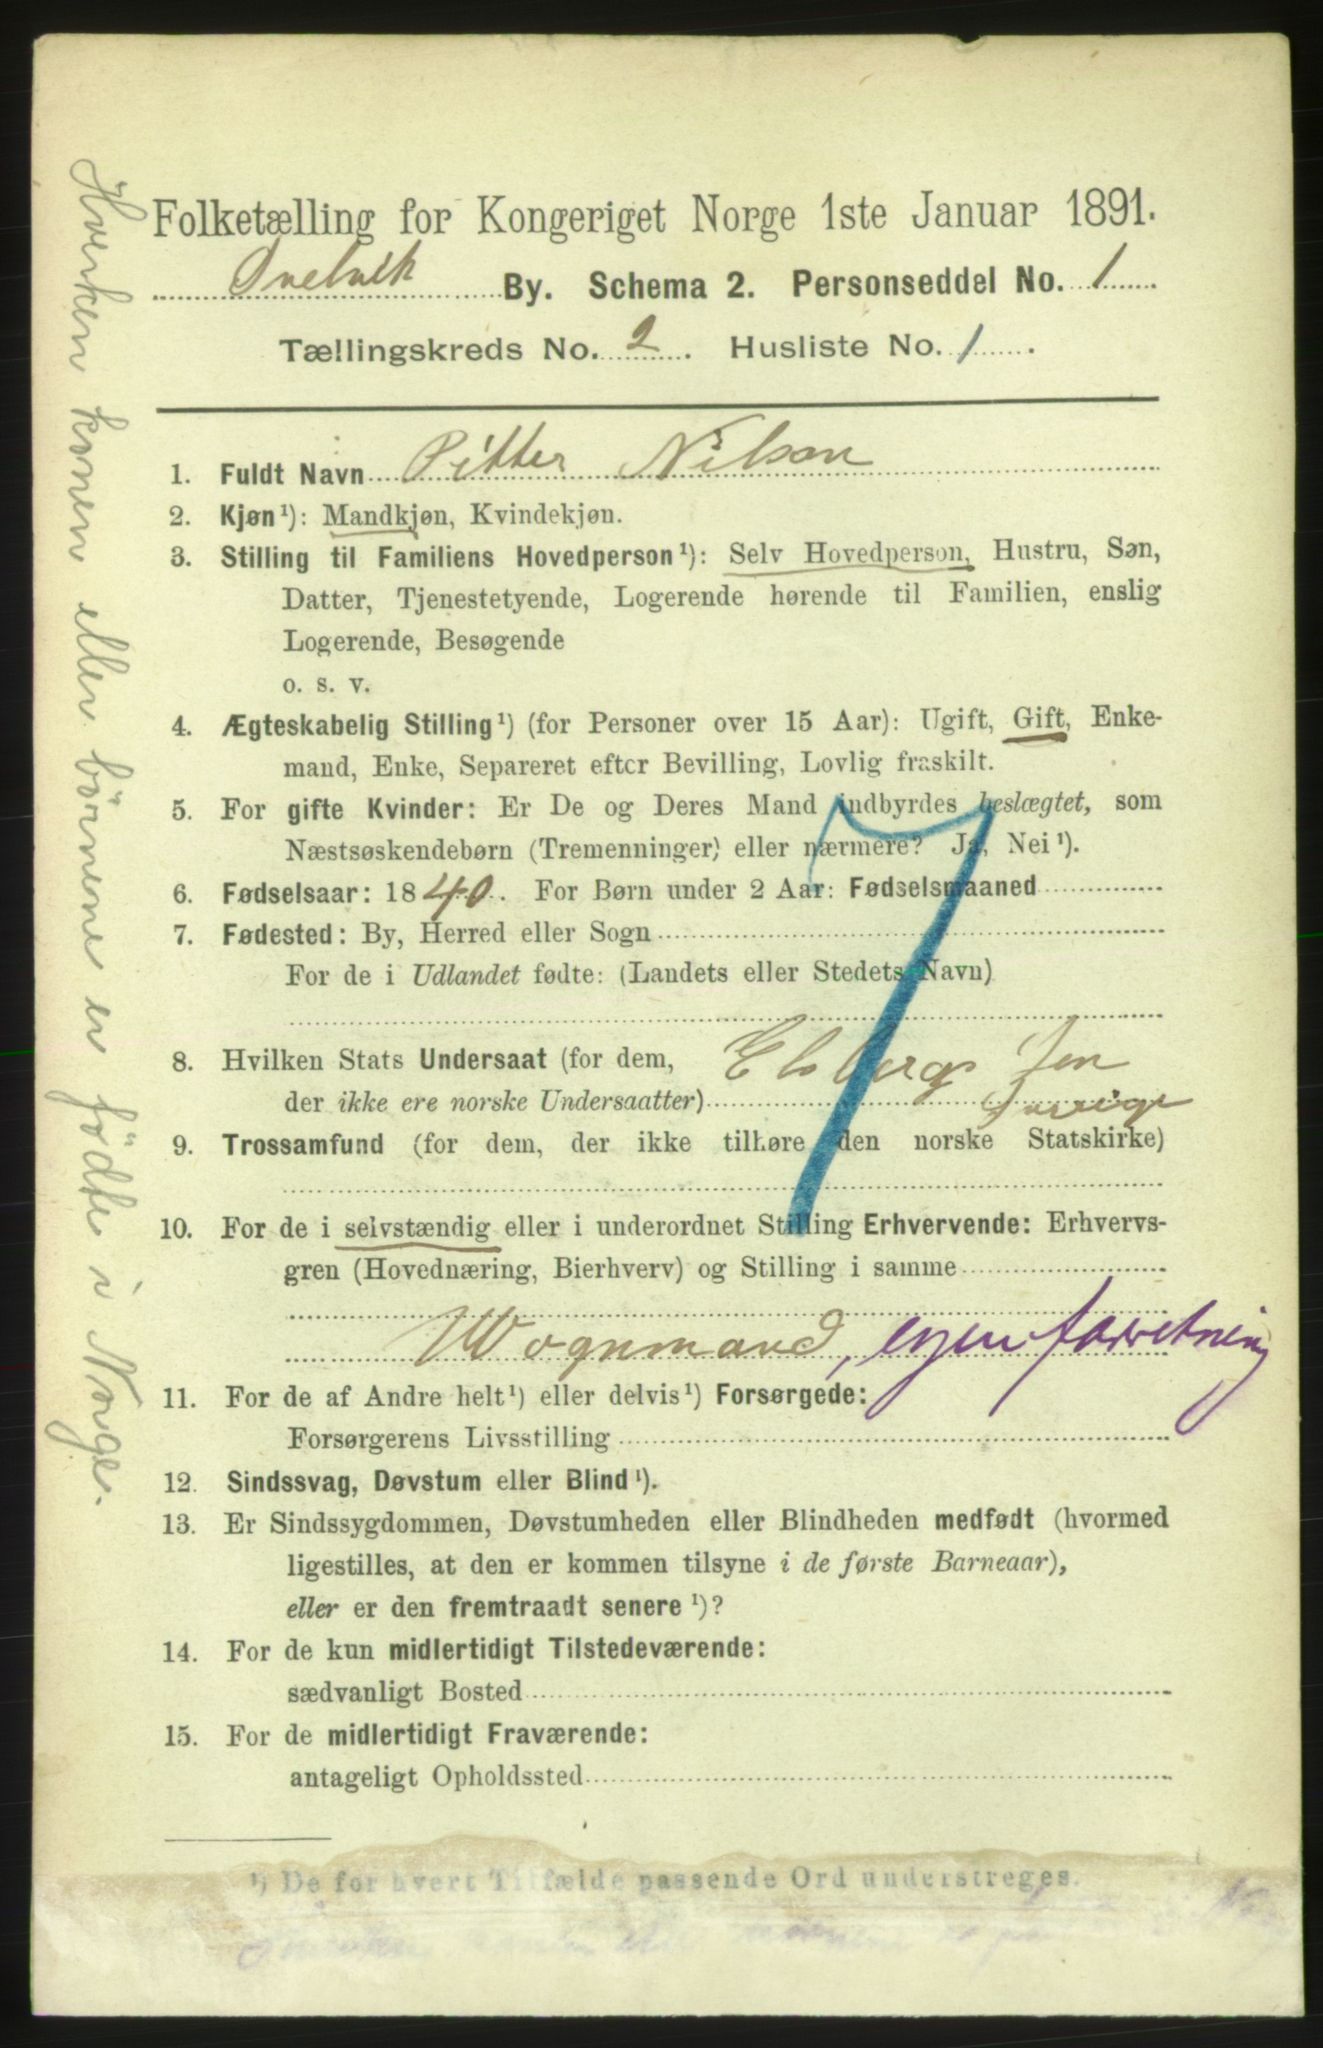 Folketælling for Kongeriget Norge 1ste Januar 1891.
Svelvik By. Schema 2. Personseddel No. 1
Tællingskreds No. 2. Husliste No. 1.
1. Fuldt Navn Pitter Nilson
2. Kjøn¹): Mandkjøn, Kvindekjøn.
3. Stilling til Familiens Hovedperson¹): Selv Hovedperson, Hustru, Søn,
Datter, Tjenestetyende, Logerende hørende til Familien, enslig
Logerende, Besøgende
o. s. v.
4. Ægteskabelig Stilling¹) (for Personer over 15 Aar): Ugift, Gift, Enke-
mand, Enke, Separeret efter Bevilling, Lovlig fraskilt.
5. For gifte Kvinder: Er De og Deres Mand indbyrdes beslægtet, som
Næstsøskendebørn (Tremenninger) eller nærmere? Ja, Nei¹).
6. Fødselsaar: 1840. For Børn under 2 Aar: Fødselsmaaned
7. Fødested: By, Herred eller Sogn
For de i Udlandet fødte: (Landets eller Stedets Navn)
8. Hvilken Stats Undersaat (for dem, Elsbergs len
der ikke ere norske Undersaatter) Sverige
9. Trossamfund (for dem, der ikke tilhøre den norske Statskirke)
10. For de i selvstændig eller i underordnet Stilling Erhvervende: Erhvervs-
gren (Hovednæring, Bierhverv) og Stilling i samme
Wognmand, egen forretning
11. For de af Andre helt¹) eller delvis¹) Forsørgede:
Forsørgerens Livsstilling
12. Sindssvag, Døvstum eller Blind¹).
13. Er Sindssygdommen, Døvstumheden eller Blindheden medfødt (hvormed
ligestilles, at den er kommen tilsyne i de første Barneaar),
eller er den fremtraadt senere¹)?
14. For de kun midlertidigt Tilstedeværende:
sædvanligt Bosted
15. For de midlertidigt Fraværende:
antageligt Opholdssted
¹) De for hvert Tilfælde passende Ord understreges.
Hverken konen eller börnene er födte i Norge.